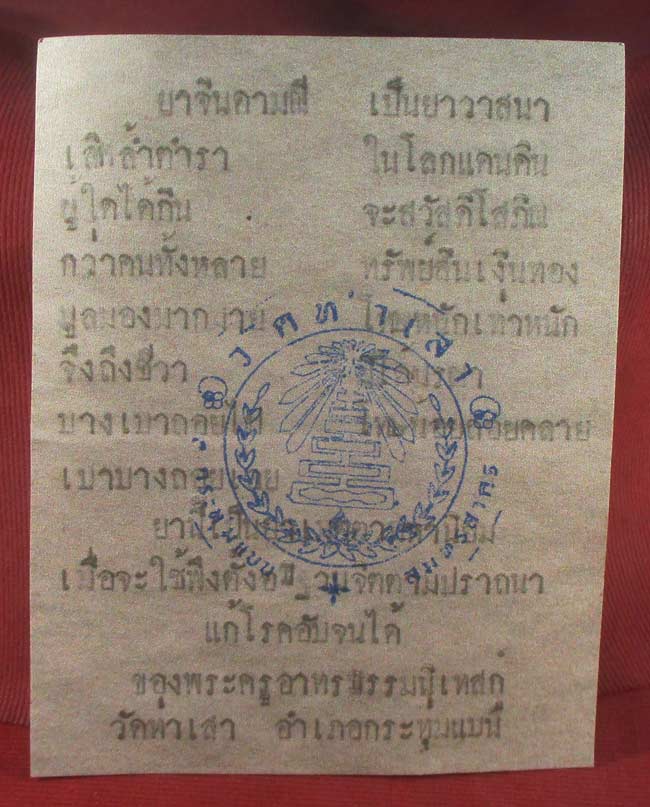 ยาจินดามณี เป็นยาวาสนา
เลิศล้ำตำรา ในโลกแดนดิน
ผู้ใดได้กิน จะสวัสดิโสภิณ
กว่าคนทั้งหลาย ทรัพย์สินเงินทอง
มูลมองมากมาย โทษหนักเท่าหนัก
จึงถึงชีวา
บางเบาถอยไป คลาย
เบาบาง
ยานี้เป็น
เมื่อจะใช้พึงตั้ง จิตตามปราถนา
แก้โรคอับจนได้
ของพระครูอาทรธรรมนิเทสก์
วัดท่าเสา อำเภอกระทุ่มแบน
วัดท่าเสา
กระทุ่มแบน
สมุทรสาคร